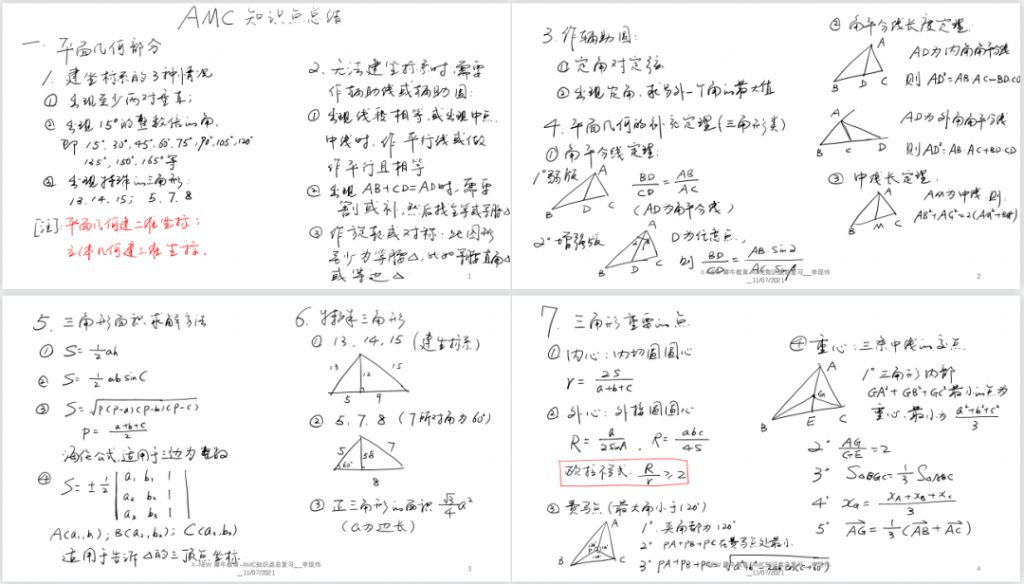 AMC 知识点总结
一. 平面几何部分
1. 建坐标系的3种情况
① 出现至少两对垂直;
② 出现15°的整数倍的角,
即 15°, 30°, 45°, 60°, 75°, 90°, 105°, 120°
135°, 150°, 165°等
③ 出现特殊的三角形:
13. 14. 15; 5. 7. 8
[注]: 平面几何建二维坐标;
立体几何建三维坐标.
2. 无法建坐标系时, 需要
作辅助线或辅助圆:
① 出现线段相等, 或出现中点,
中线时, 作平行线或做
作平行且相等
② 出现 AB+CD=AD时, 需要
割或补, 然后找全等或等腰△
③ 作旋转或对称: 此图形
至少为等腰△, 比如等腰直角△
或等边△
1
3. 作辅助圆:
① 定角对定弦
② 出现定角, 求另外一个角的最大值
4. 平面几何的补充定理(三角形类)
① 角平分线定理:
1° 弱版
A
B D C
BD/CD = AB/AC
(AD为角平分线)
2° 增强版
A
B D C
D为任意点,
则 BD/CD = AB·sin2/AC·sin1
② 角平分线长度定理.
A
B D C
AD为内角角平分线
则 AD²=AB·AC-BD·CD
A
B C D
AD为外角角平分线
则AD²=AB·AC+BD·CD
③ 中线长定理.
A
B M C
AM为中线 则
AB²+AC²=2(AM²+BM²)
X-NEW 犀牛教育-AMC知识点总复习__李现伟
__11/07/2021
2
5. 三角形面积求解方法
① S=1/2 ah
② S=1/2 ab sinC
③ S=√p(p-a)(p-b)(p-c)
P = a+b+c/2
海伦公式, 适用于三边为整数
④ S=±1/2 | a₁ b₁ 1 |
| a₂ b₂ 1 |
| a₃ b₃ 1 |
A(a₁,b₁); B(a₂,b₂); C(a₃,b₃)
适用于告诉△的三顶点坐标.
6. 特殊三角形
① 13. 14. 15 (建坐标系)
13 12 15
5 9
② 5. 7. 8 (7所对角为60°)
5 7
60° 5√3
8
③ 正三角形的面积 √3/4 a²
(a为边长)
X-NEW 犀牛教育-AMC知识点总复习__李现伟
__11/07/2021
3
7. 三角形重要的点
① 内心: 内切圆圆心
r = 2S/a+b+c
② 外心: 外接圆圆心
R = a/2sinA , R = abc/4S
欧拉不等式: R/r ≥ 2
③ 费马点 (最大角小于120°)
A
B C
1° 夹角都为120°
2° PA+PB+PC在费马点处最小.
④ 重心: 三条中线的交点
A
G
B E C
1° 三角形内部
GA²+GB²+GC²最小的点为
重心, 最小为 a²+b²+c²/3
2° AG/GE = 2
3° S△BGC = 1/3 S△ABC
4° x_G = x_A+x_B+x_C/3
5° AG = 1/3 (AB + AC)
X-NEW 犀牛教育-AMC知识点总复习__李现伟
__11/07/2021
4